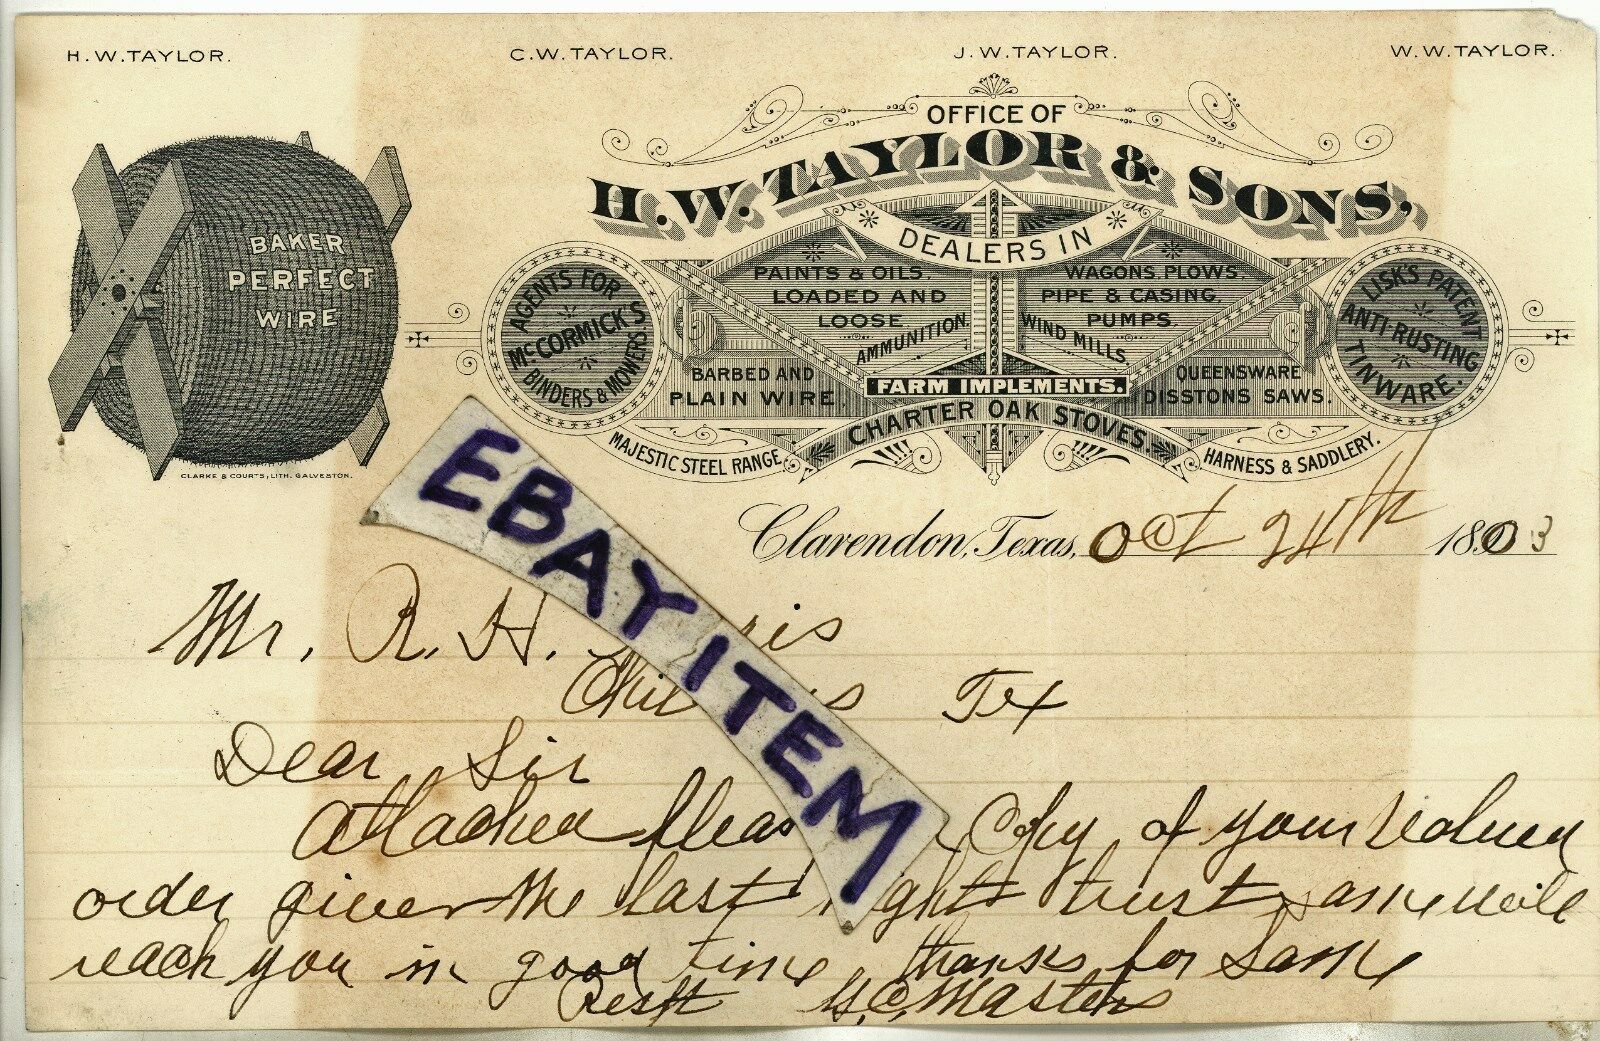 H. W. TAYLOR.
C. W. TAYLOR.
J. W. TAYLOR.
W. W. TAYLOR.
OFFICE OF
H. W. TAYLOR & SONS,
DEALERS IN
PAINTS & OILS.
LOADED AND
LOOSE
AMMUNITION.
WAGONS, PLOWS.
PIPE & CASING.
PUMPS.
WIND MILLS.
BARBED AND
PLAIN WIRE.
FARM IMPLEMENTS.
QUEENSWARE
DISSTONS SAWS.
CHARTER OAK STOVES
MAJESTIC STEEL RANGE
HARNESS & SADDLERY.
AGENTS FOR
McCORMICK'S
BINDERS & MOWERS
LISK'S PATENT
ANTI-RUSTING
TINWARE.
BAKER
PERFECT
WIRE
CLARKE & COURTS, LITH. GALVESTON.
EBAY ITEM
Clarendon, Texas, Oct 24th 1803
Mr. R. H.
Tex
Dear Sir
Attached Copy of your valued
order given the last trust same will
reach you in good time thanks for same
Resft